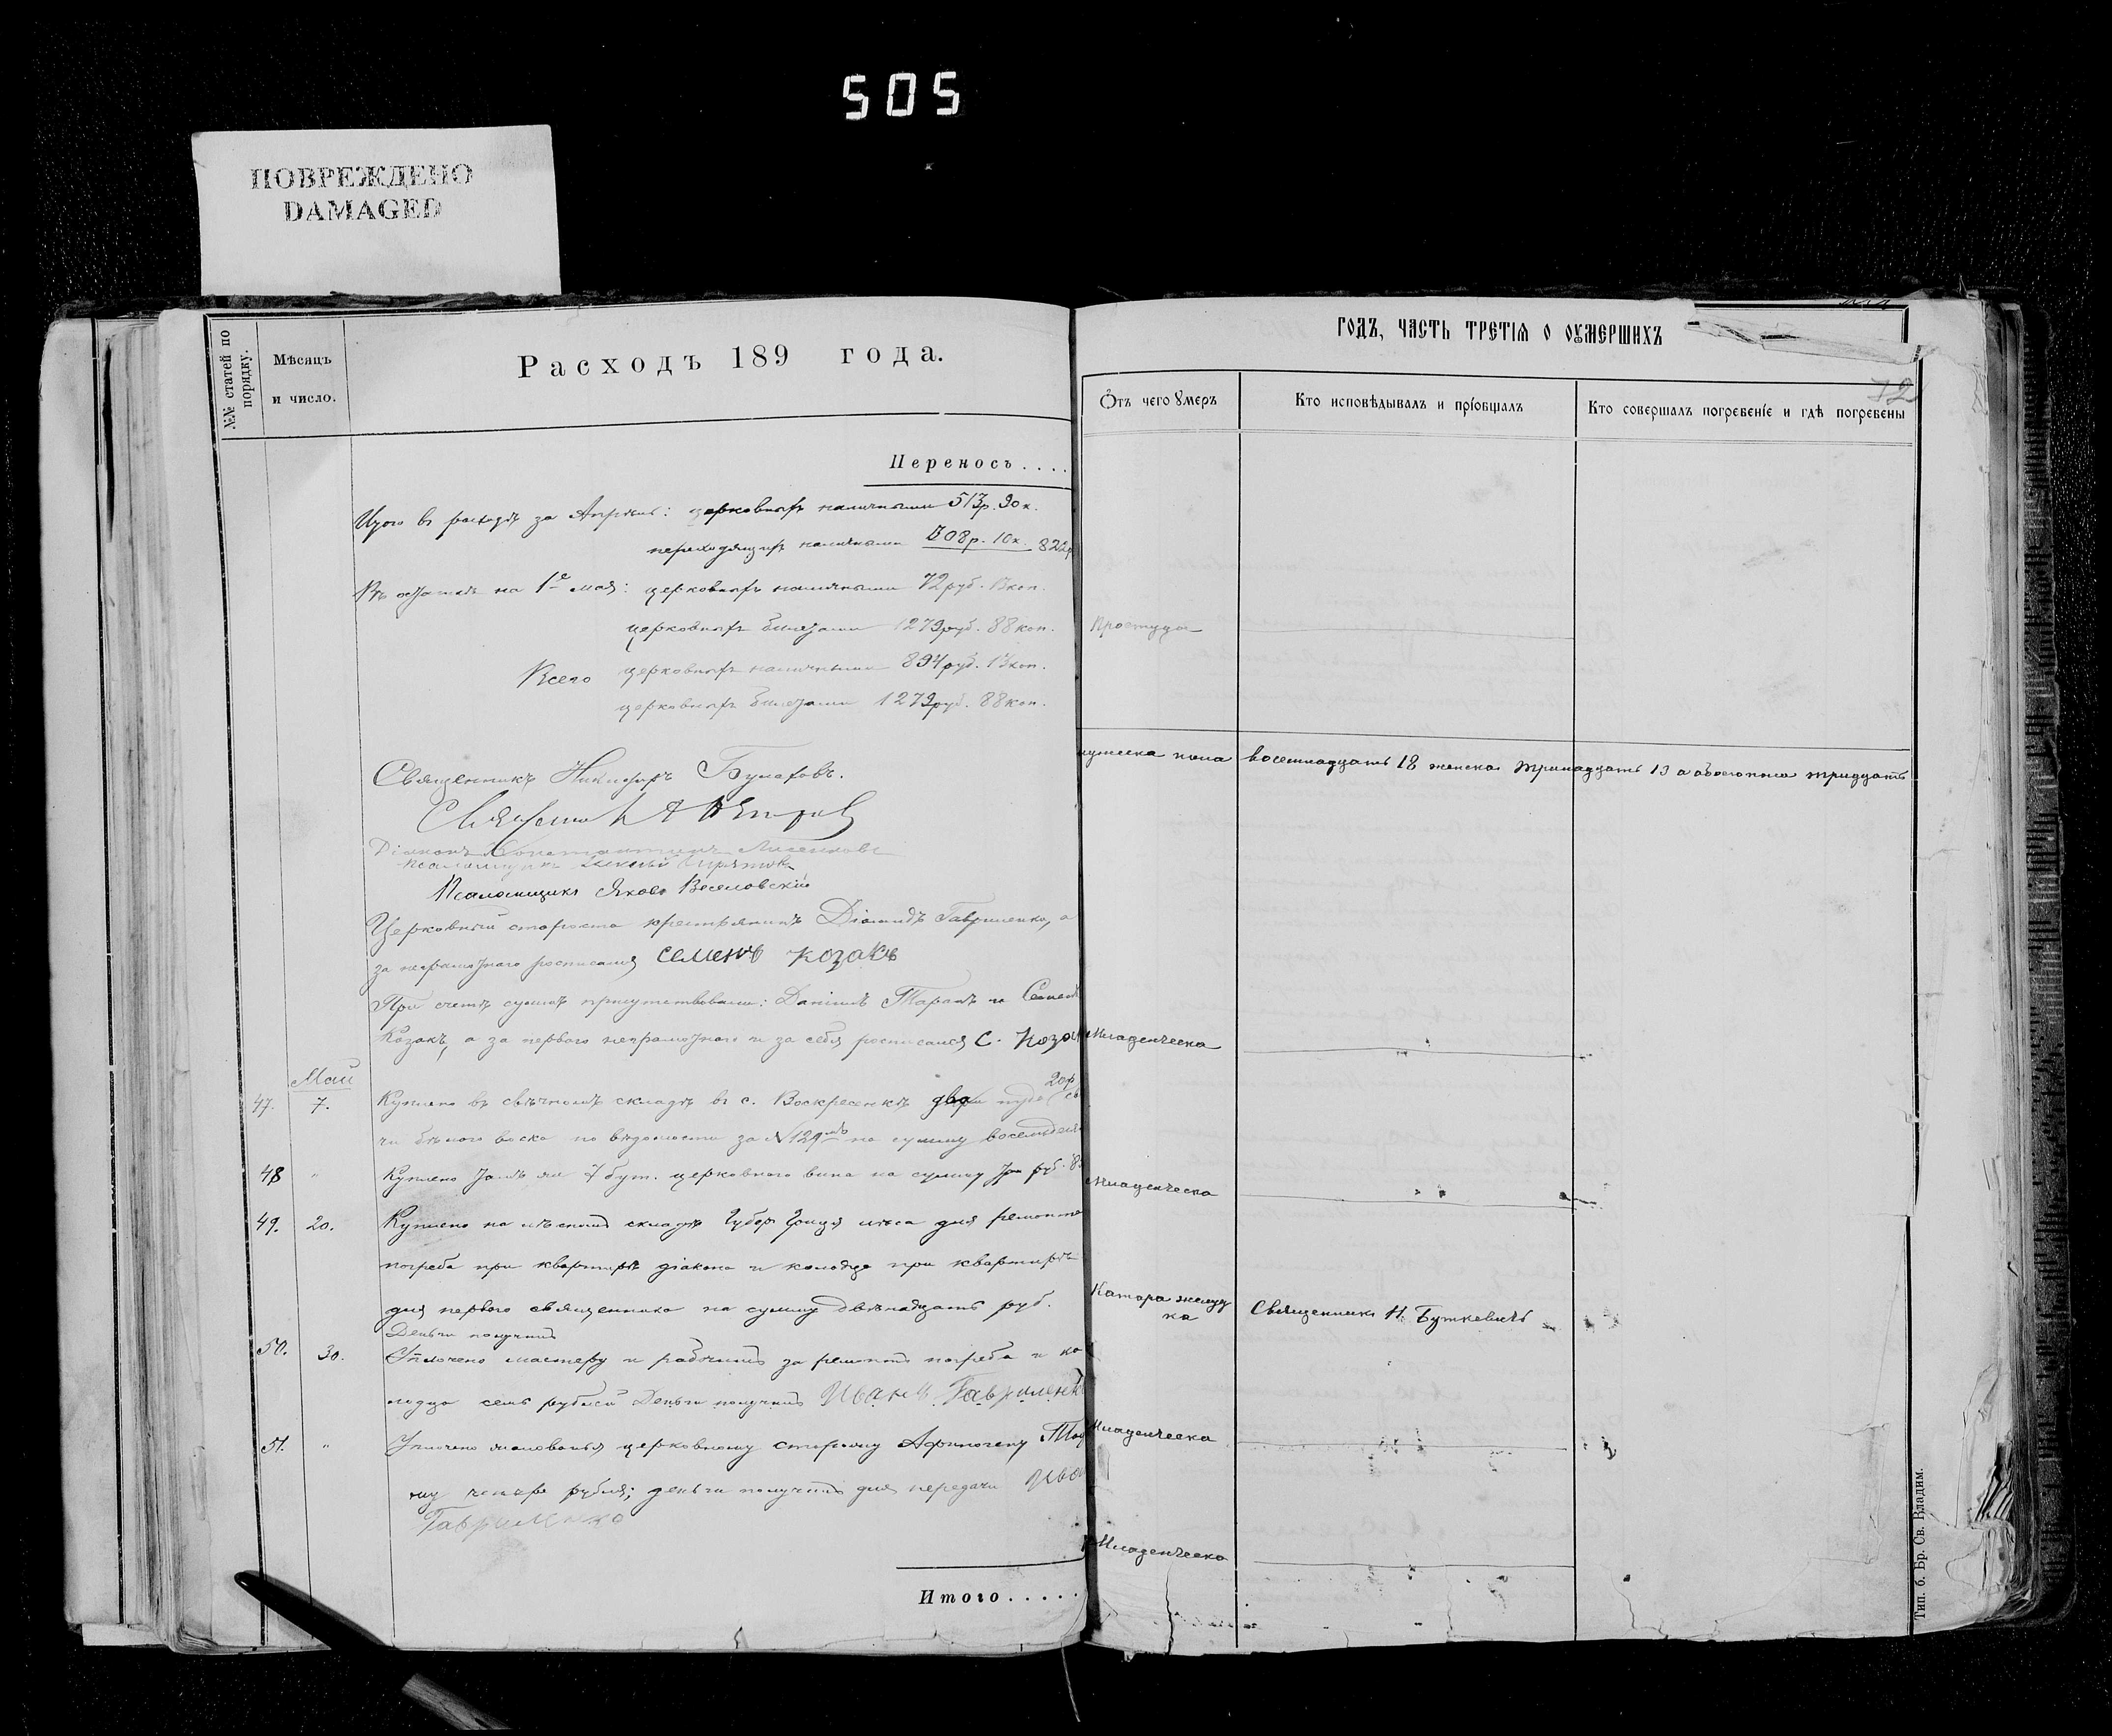 505
ПОВРЕЖДЕНО
DAMAGED
№№ статей по порядку.
Мѣсяцъ
и число.
Расходъ 189 года.
Переносъ....
Итого въ расходѣ за Апрѣль: церковныхъ наличными 513р. 90к.
переходящихъ наличными 308р. 10к. 822р
Въ остаткѣ на 1е мая: церковныхъ наличными 72руб. 13коп.
церковныхъ билетами 1279руб. 88коп.
Всего церковныхъ наличными 894руб. 13коп.
церковныхъ билетами 1279руб. 88коп.
Священникъ Никифоръ
Священникъ А
Діаконъ Константинъ
Псаломщикъ
Псаломщикъ Яковъ Веселовскій
Церковный староста крестьянинъ Діомидъ Гавриленко, а
за неграмотного росписался Семенъ Козакъ
При счетѣ суммъ присутствовали: Даніилъ Таранъ и Семенъ
Козакъ, а за первого неграмотного и за себя росписался С. Коза
Май
47. 7. Куплено въ свѣчномъ складѣ въ с. Воскресенкѣ два пуда 20ф св
чи бѣлого воска по вѣдомости за №129мъ на сумму восемьдеся
48 " Куплено тамъ же 7 бут. церковного вина на сумму три руб. 8
49. 20. Куплено на лѣсномъ складѣ лѣса для ремонта
погреба при квартирѣ діакона и колодца при квартирѣ
для первого священника на сумму двѣнадцать руб.
Деньги получилъ
50. 30. Уплочено мастеру и рабочимъ за ремонтъ погреба и ко
лодца семь рублей Деньги получилъ Иванъ Гавриленко
51. " Уплочено жалованья церковному сторожу Афиногену
ну четыре рубля; деньги получилъ для передачи Иван
Гавриленко
Итого.....
годъ, часть третія о оумершихъ
12
Отъ чего умеръ
Кто исповѣдывалъ и пріобщалъ
Кто совершалъ погребеніе и гдѣ погребены
Простуды
мужеска пола восемнадцать 18 женска тринадцать 13 а обоего пола тридцать
Младенческа
Младенческа
Катара желуд
ка
Священникъ Н. Буткевичъ
Младенческа
Младенческа
Тип. б. Бр. Св. Владим.